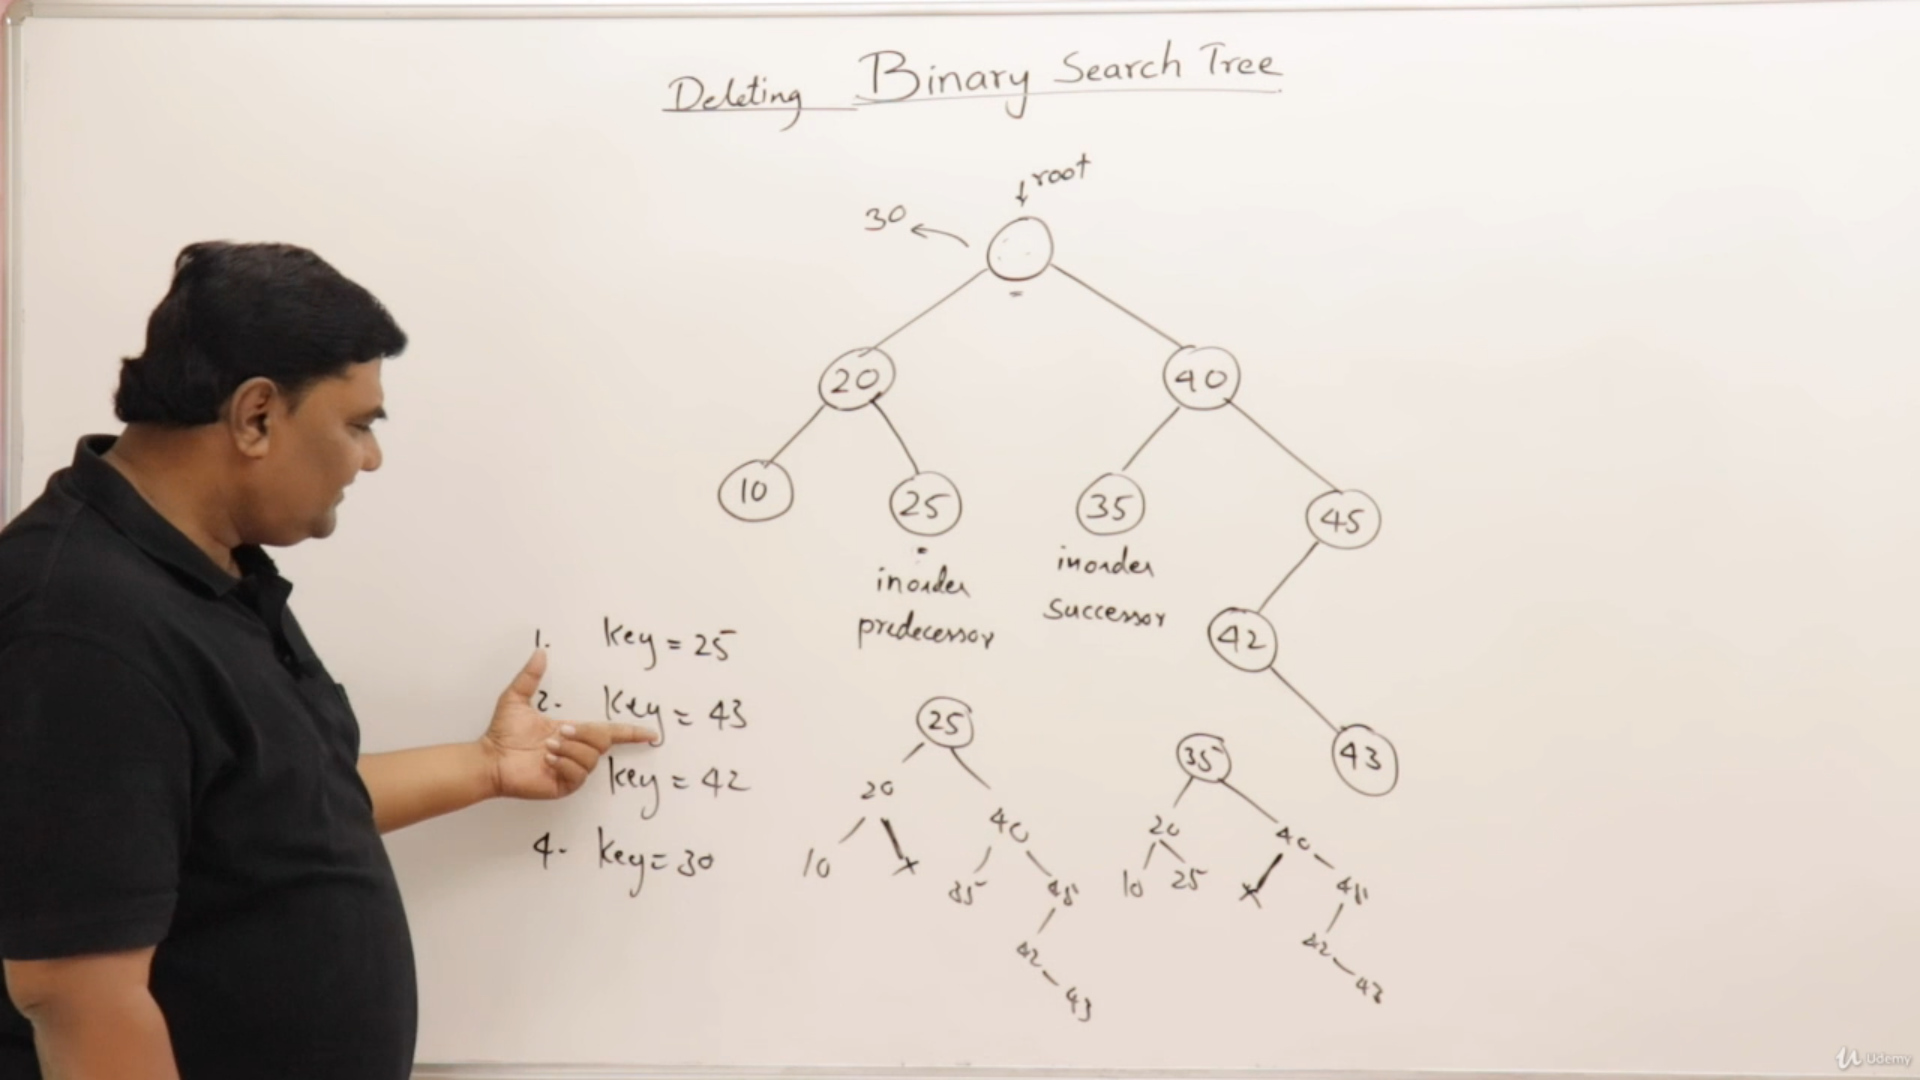 Deleting Binary Search Tree
root
30
20
40
10
25
35
45
inorder
predecessor
inorder
successor
42
43
1. Key = 25
2. Key = 43
Key = 42
4. Key = 30
25
20
40
10
x
35
45
42
43
35
20
40
10
25
x
45
42
43
Udemy